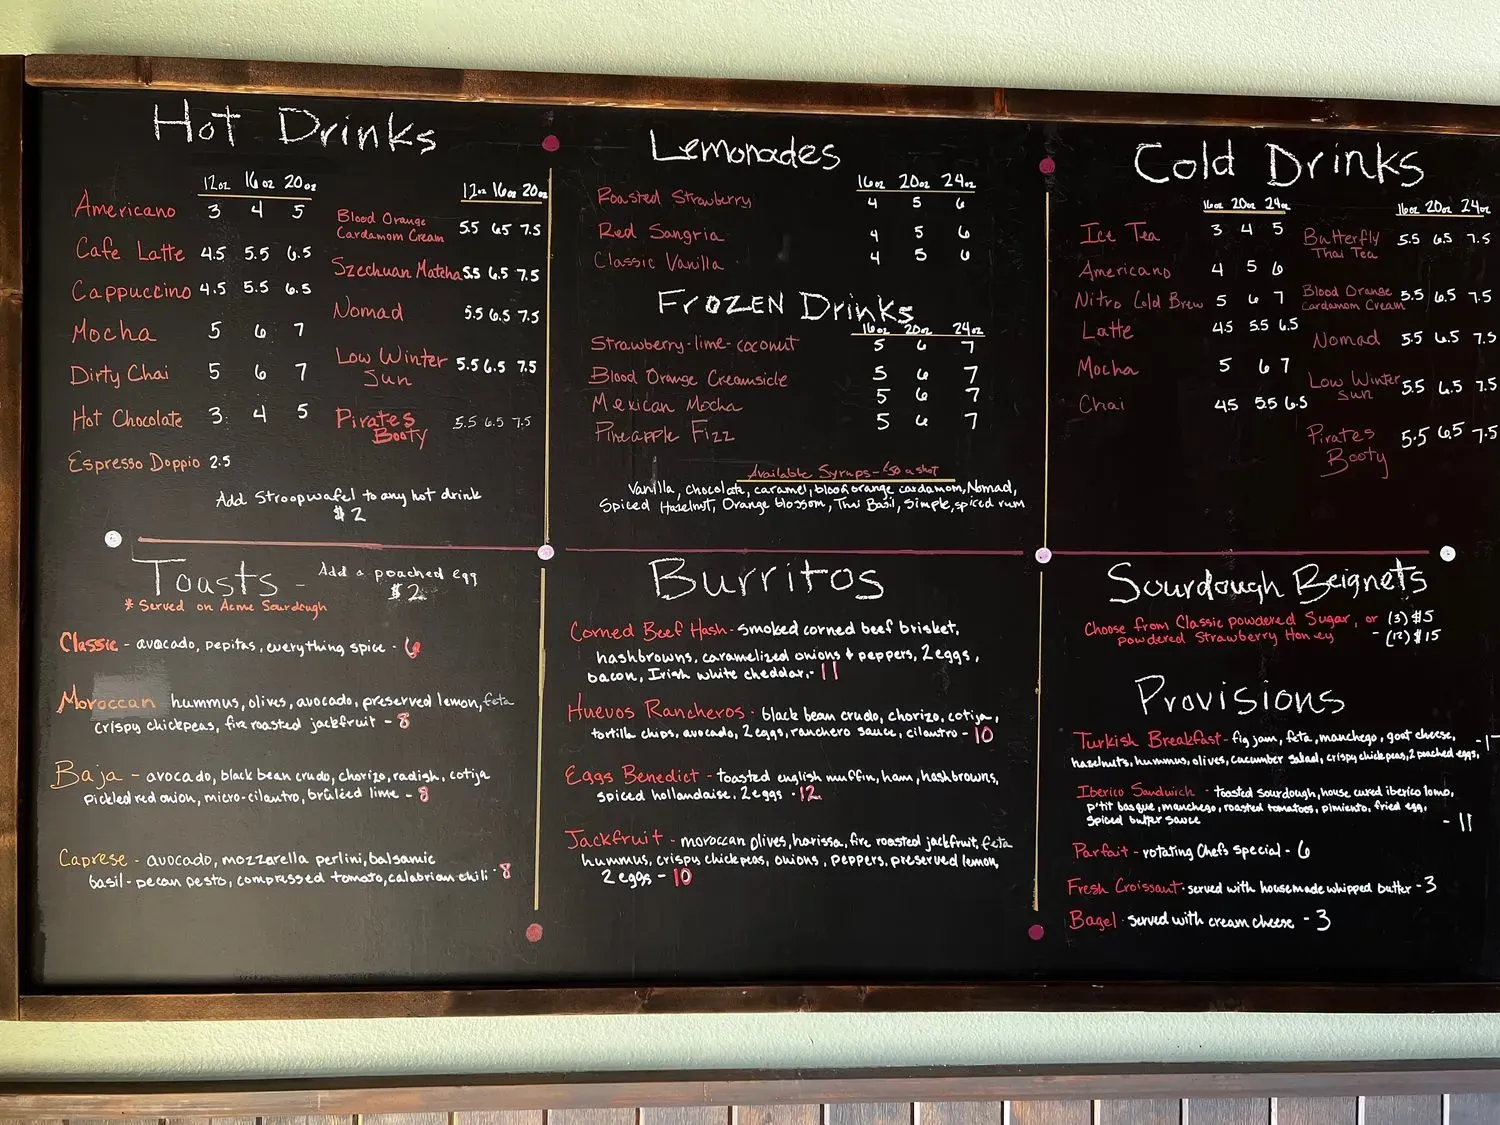 Hot Drinks
12oz 16oz 20oz
Americano 3 4 5
Cafe Latte 4.5 5.5 6.5
Cappuccino 4.5 5.5 6.5
Mocha 5 6 7
Dirty Chai 5 6 7
Hot Chocolate 3 4 5
Espresso Doppio 2.5
12oz 16oz 20oz
Blood Orange
Cardamom Cream 5.5 6.5 7.5
Szechuan Matcha 5.5 6.5 7.5
Nomad 5.5 6.5 7.5
Low Winter
Sun 5.5 6.5 7.5
Pirates
Booty 5.5 6.5 7.5
Add Stroopwafel to any hot drink
$2
Lemonades
16oz 20oz 24oz
Roasted Strawberry 4 5 6
Red Sangria 4 5 6
Classic Vanilla 4 5 6
Frozen Drinks
16oz 20oz 24oz
Strawberry-lime-coconut 5 6 7
Blood Orange Creamsicle 5 6 7
Mexican Mocha 5 6 7
Pineapple Fizz 5 6 7
Available Syrups - .50 a shot
Vanilla, chocolate, caramel, blood orange cardamom, Nomad,
Spiced Hazelnut, Orange blossom, Thai Basil, simple, spiced rum
Cold Drinks
16oz 20oz 24oz
Ice Tea 3 4 5
Americano 4 5 6
Nitro Cold Brew 5 6 7
Latte 4.5 5.5 6.5
Mocha 5 6 7
Chai 4.5 5.5 6.5
16oz 20oz 24oz
Butterfly
Thai Tea 5.5 6.5 7.5
Blood Orange
Cardamom Cream 5.5 6.5 7.5
Nomad 5.5 6.5 7.5
Low Winter
Sun 5.5 6.5 7.5
Pirates
Booty 5.5 6.5 7.5
Toasts - Add a poached egg
$2
* Served on Acme Sourdough
Classic - avocado, pepitas, everything spice - 6
Moroccan hummus, olives, avocado, preserved lemon, feta
crispy chickpeas, fire roasted jackfruit - 8
Baja - avocado, black bean crudo, chorizo, radish, cotija
pickled red onion, micro-cilantro, brûléed lime - 8
Caprese - avocado, mozzarella perlini, balsamic
basil-pecan pesto, compressed tomato, calabrian chili - 8
Burritos
Corned Beef Hash - smoked corned beef brisket,
hashbrowns, caramelized onions + peppers, 2 eggs,
bacon, Irish white cheddar. - 11
Huevos Rancheros - black bean crudo, chorizo, cotija,
tortilla chips, avocado, 2 eggs, ranchero sauce, cilantro - 10
Eggs Benedict - toasted english muffin, ham, hashbrowns,
spiced hollandaise, 2 eggs - 12
Jackfruit - moroccan olives, harissa, fire roasted jackfruit, feta
hummus, crispy chickpeas, onions, peppers, preserved lemon,
2 eggs - 10
Sourdough Beignets
Choose from Classic powdered Sugar, or (3) $5
powdered Strawberry Honey - (12) $15
Provisions
Turkish Breakfast - fig jam, feta, manchego, goat cheese,
hazelnuts, hummus, olives, cucumber salad, crispy chickpeas, 2 poached eggs,
Iberico Sandwich - toasted sourdough, house cured iberico lomo,
p'tit basque, manchego, roasted tomatoes, pimiento, fried egg,
spiced butter sauce - 11
Parfait - rotating Chefs special - 6
Fresh Croissant - served with housemade whipped butter - 3
Bagel - served with cream cheese - 3